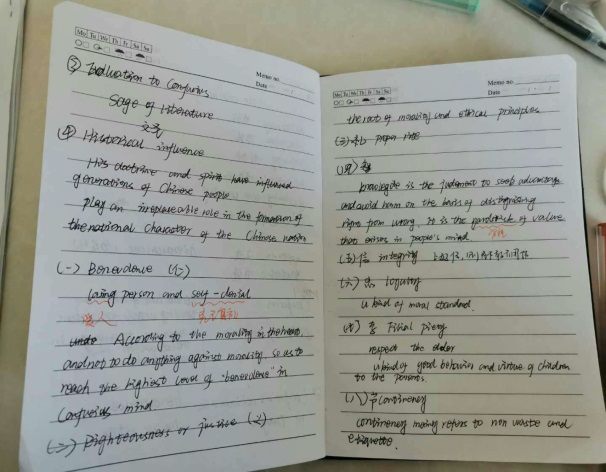 Mo Tu We Th Fr Sa Su
Memo no.
Date
③ Evaluation to Confucius
Sage of Literature
文圣
④ Historical influence
His doctrine and spirit have influenced
generations of Chinese people
play an irreplaceable role in the formation of
the national character of the Chinese nation
(一) Benevolence (仁)
loving person and self-denial
爱人 克己复礼
According to the morality in the heart,
and not to do anything against morality so as to
reach the highest level of "benevolence" in
Confucius' mind
(二) Righteousness or justice (义)
Mo Tu We Th Fr Sa Su
Memo no.
Date
the root of morality and ethical principles
(三) 礼 proper rite
(四)
knowledge is the judgment to seek advantage
and avoid harm on the basis of distinguishing
right from wrong. It is the of value
that exists in people's mind
(五) 信 integrity
(六) 忠 loyalty
a kind of moral standard.
(七) 孝 Filial piety
respect the elder
a kind of good behavior and virtue of children
to the parents.
(八) 节 continency
continency mainly refers to non waste and
etiquette.